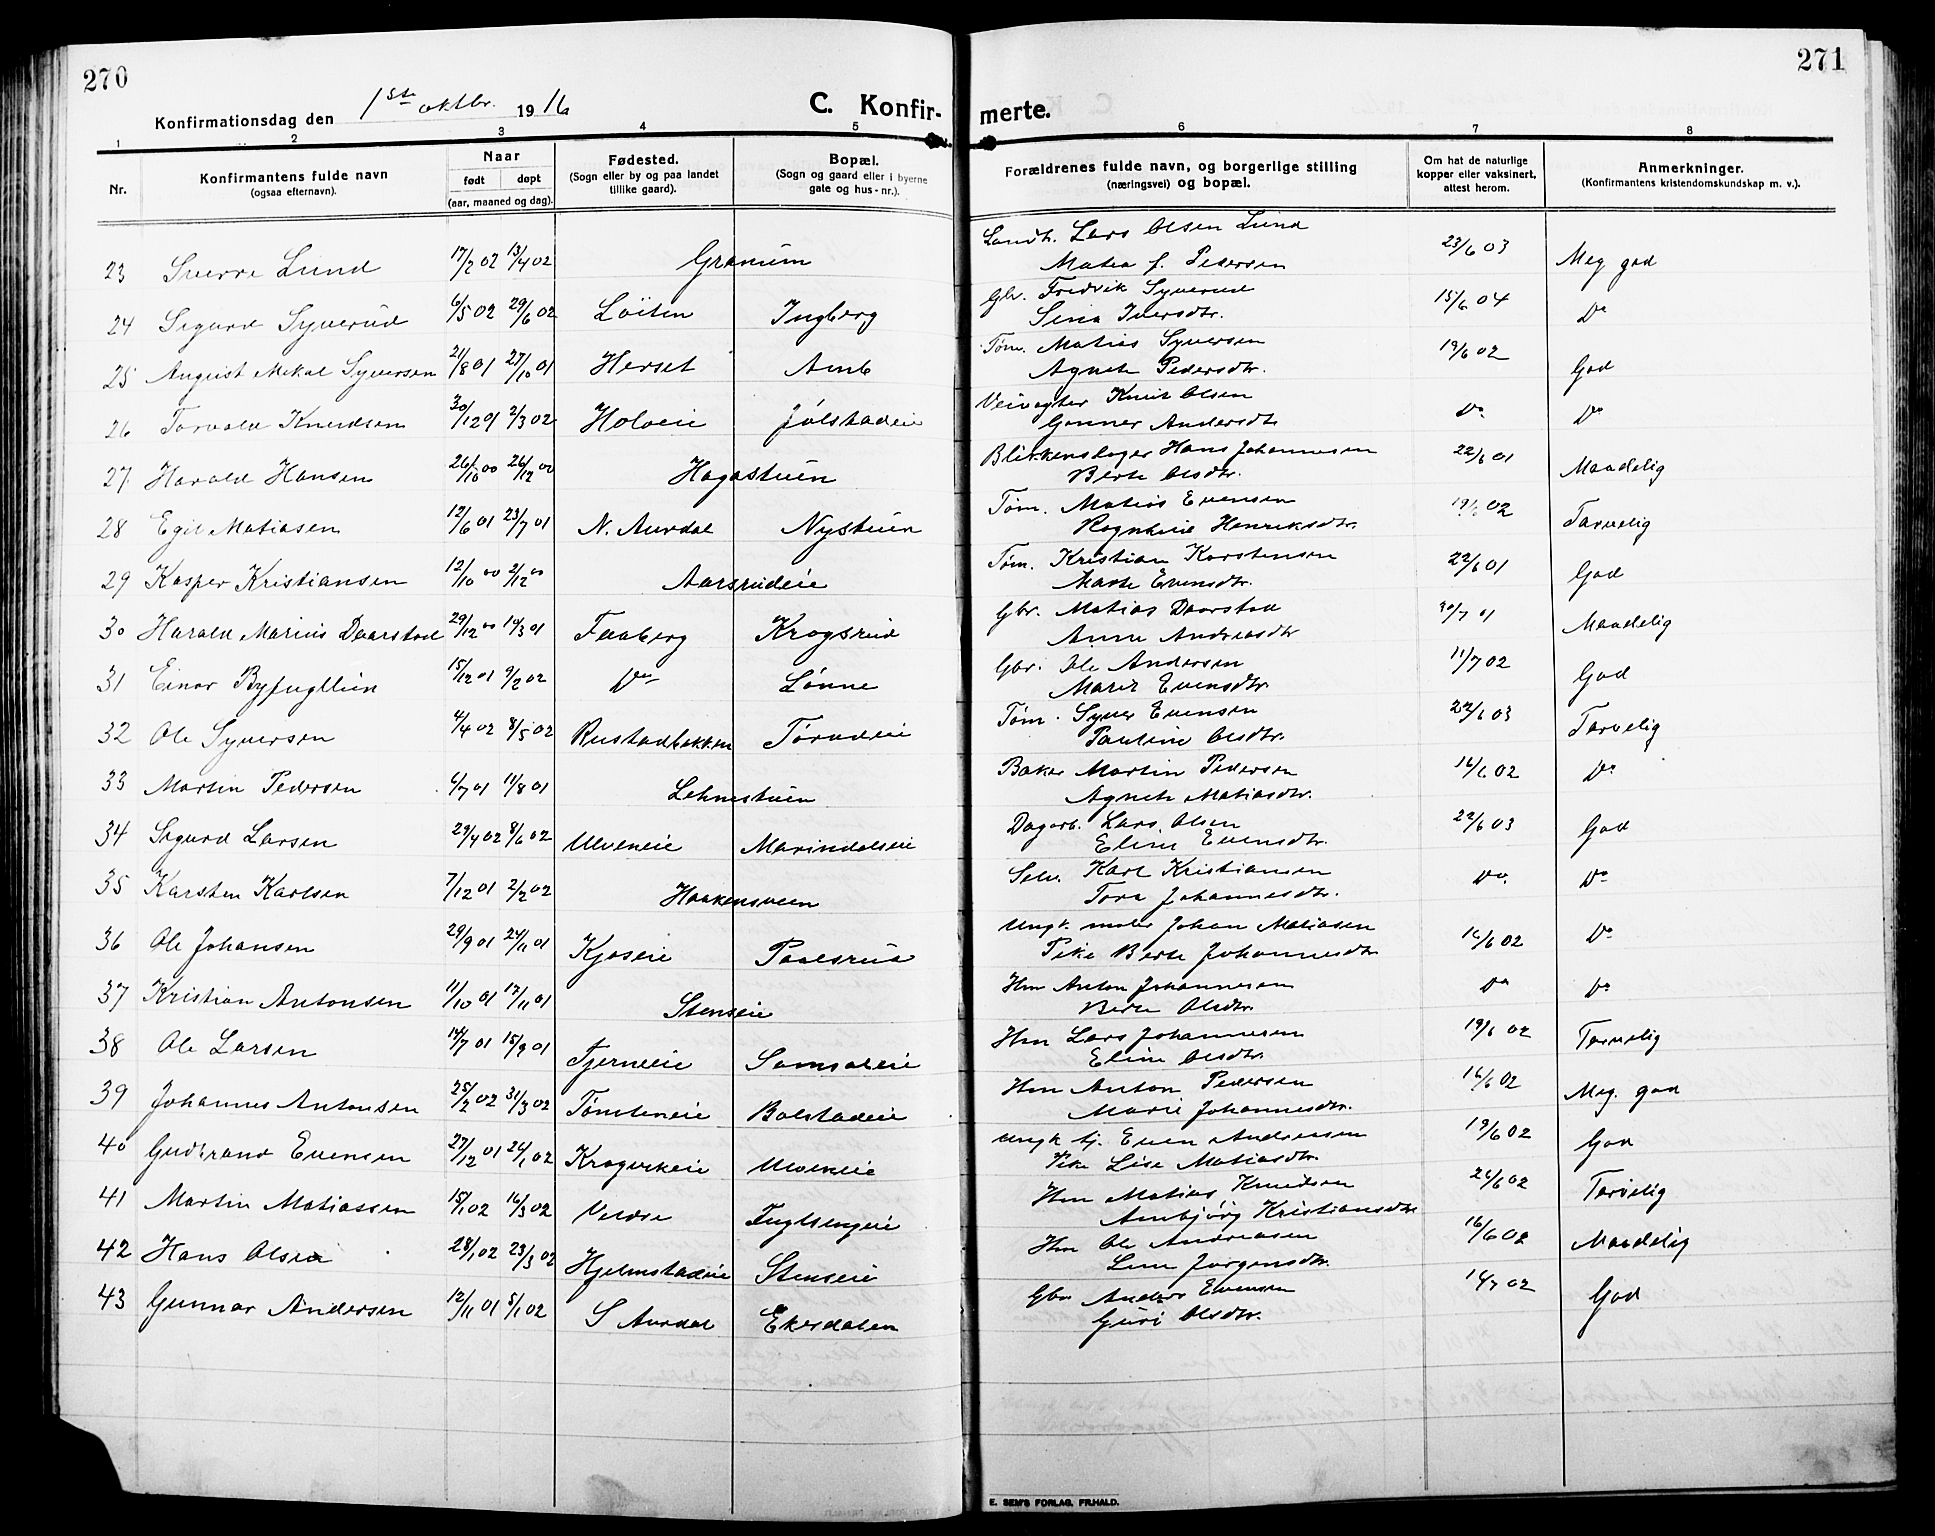 270
271
Konfirmationsdag den 1ste oktbr. 1916
C. Konfir-
merte.
1 2 3 4 5 6 7 8
Nr.
Konfirmantens fulde navn
(ogsaa efternavn).
Naar
født døpt
(aar, maaned og dag).
Fødested.
(Sogn eller by og paa landet
tillike gaard).
Bopæl.
(Sogn og gaard eller i byerne
gate og hus-nr.).
Forældrenes fulde navn, og borgerlige stilling
(næringsvei) og bopæl.
Om hat de naturlige
kopper eller vaksinert,
attest herom.
Anmerkninger.
(Konfirmantens kristendomskundskap m. v.).
23 Sverre Lund 17/2 02 13/4 02 Granum Lars Olsen Lund 23/6 03 Meg god
Matea f. Pedersen
24 Sigurd Syverud 6/5 02 29/6 02 Løiten Ingberg Gbr. Fredrik Syverud 15/6 04 Do
Sina Iversdtr.
25 August Mikal Syversen 21/8 01 27/10 01 Herset Amb Tøm. Matias Syversen 19/6 02 God
Agnete Pedersdtr.
26 Torvald Knudsen 30/12 01 2/3 02 Holveie Jølstadeie Veivogter Knut Olsen Do Do
Gunner Andersdtr
27 Harald Hansen 26/10 00 26/12 00 Hagastuen Blikkenslager Hans Johannesen 22/6 01 Maadelig
Berte Olsdtr.
28 Egil Matiasen 12/6 01 23/7 01 N. Aurdal Nystuen Tøm. Matias Evensen 19/6 02 Tarvelig
Ragnheid Henriksdtr.
29 Kasper Kristiansen 12/10 00 2/12 00 Aarsrudeie Tøm. Kristian Karstensen 22/6 01 God
Marte Evensdtr.
30 Harald Marius Daarstad 29/12 00 10/3 01 Faaberg Krogsrud Gbr. Matias Daarstad 30/7 01 Maadelig
Anne Andreasdtr
31 Einar Byfugllien 15/12 01 9/2 02 Do Lønne Gbr. Ole Andersen 11/7 02 God
Marit Evensdtr.
32 Ole Syversen 4/4 02 8/5 02 Rustadbakken Tørudeie Tøm. Syver Evensen 22/6 03 Tarvelig
Pauline Olsdtr.
33 Martin Pedersen 6/7 01 11/8 01 Lehnestuen Baker Martin Pedersen 16/6 02 Do
Agnete Matiasdtr.
34 Sigurd Larsen 29/4 02 8/6 02 Ulveneie Marindalseie Dagarb. Lars Olsen 22/6 03 God
Eline Evensdtr.
35 Karsten Karlsen 7/12 01 2/2 02 Haakensveen Selv. Karl Kristiansen Do. Do
Tora Johannesdtr.
36 Ole Johansen 29/9 01 24/11 01 Kjoseie Paalsrud Ungk. maler Johan Matiasen 16/6 02 Do
Pike Berte Johannesdtr
37 Kristian Antonsen 11/10 01 17/11 01 Stenseie Hm Anton Johannesen Do Do
Berte Olsdtr.
38 Ole Larsen 14/7 01 15/9 01 Tjerneeie Samsaleie Hm Lars Johannesen 19/6 02 Tarvelig
Eline Olsdtr
39 Johannes Antonsen 25/2 02 31/3 02 Tømteneie Bolstadeie Hm Anton Pedersen 16/6 02 Meg. god
Marie Johannesdtr.
40 Gudbrand Evensen 27/12 01 26/1 02 Krogvikeie Ulveneie Ungk tj. Even Andreasen 19/6 02 God
Pike Lise Matiasdtr.
41 Martin Matiassen 15/1 02 16/3 02 Veldre Fuglsengeie Hm Matias Knudsen 26/6 02 Tarvelig
Ambjørg Kristiansdtr
42 Hans Olsen 28/1 02 23/3 02 Hjelmstadeie Stenseie Hm Ole Andreasen 16/6 02 Maadelig
Lene Jørgensdtr.
43 Gunnar Andersen 12/11 01 5/1 02 S Aurdal Ekerdalen Gbr Anders Evensen 14/7 02 God
Guri Olsdtr.
E. SEM'S FORLAG, FR.HALD.